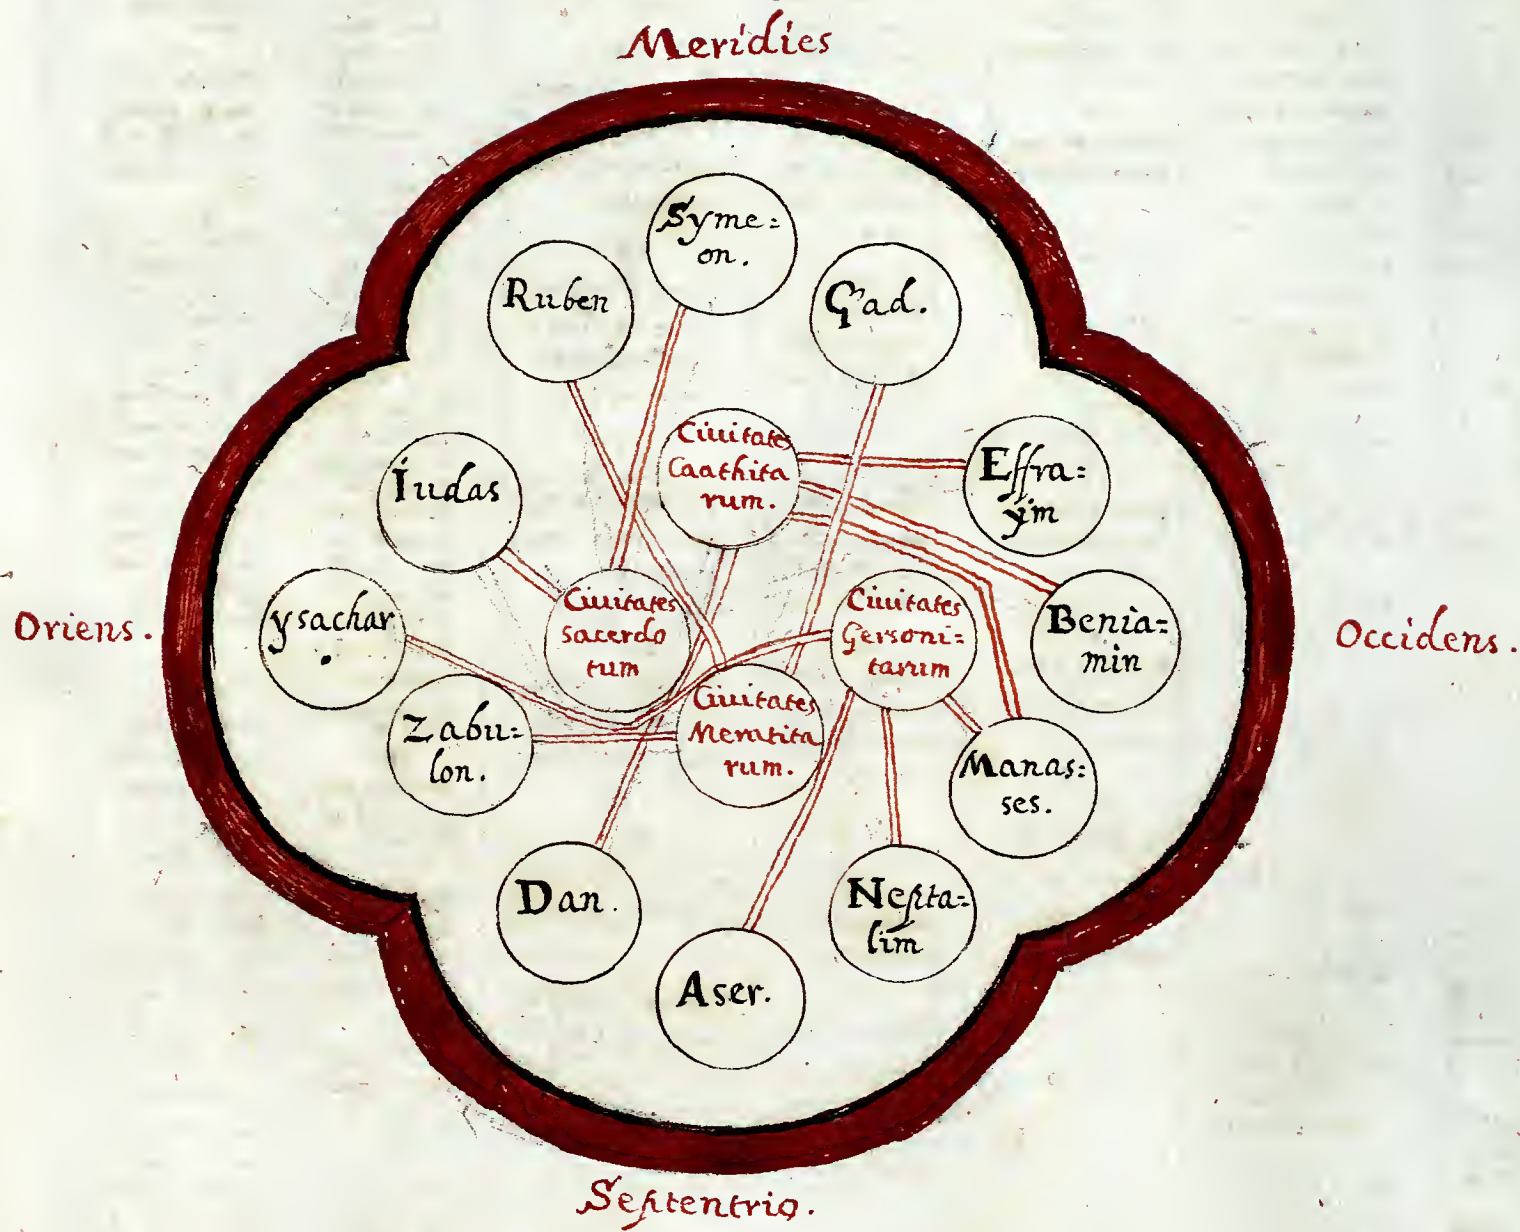 Meridies
Syme=
on.
Ruben
Gad.
Iudas
Ciuitates
Caathita
rum.
Effra=
yim
ysachar
.
Ciuitates
sacerdo
tum
Ciuitates
Gersoni=
tarum
Benia=
min
Oriens.
Occidens.
Zabu=
lon.
Ciuitates
Meratita
rum.
Manas=
ses.
Dan.
Nepta=
lim
Aser.
Septentrio.